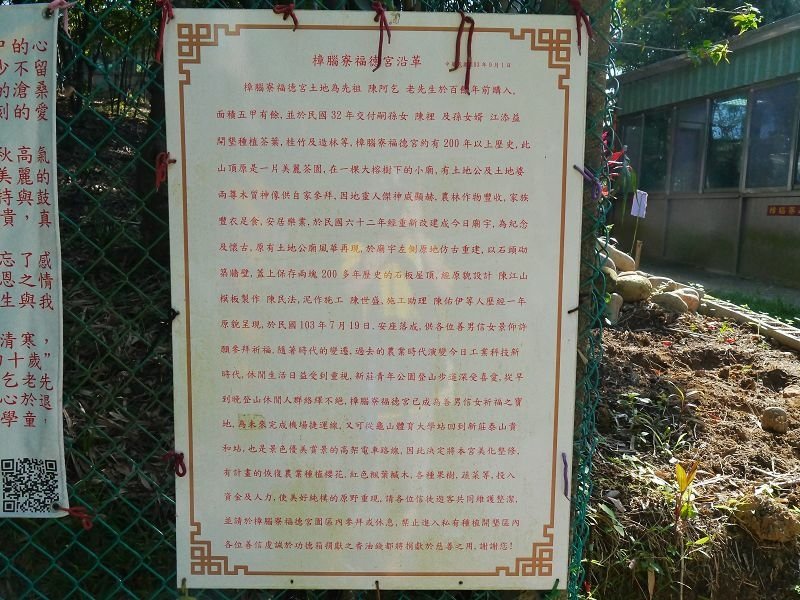 中的心
少不留
的滄桑
刻的愛
秋高氣
美麗的
特與鼓
貴，真
忘了感
恩之情
生與我
清寒，
十歲”
乞老先
心於退
學童，
樟腦寮福德宮沿革
中華民國103年9月1日
樟腦寮福德宮土地為先祖 陳阿乞 老先生於百餘年前購入,
面積五甲有餘, 並於民國 32 年交付嗣孫女 陳裡 及孫女婿 江添益
開墾種植茶葉, 桂竹及造林等, 樟腦寮福德宮約有 200 年以上歷史, 此
山頂原是一片美麗茶園, 在一棵大榕樹下的小廟, 有土地公及土地婆
兩尊木質神像供自家參拜, 因地靈人傑神威顯赫, 農林作物豐收, 家族
豐衣足食, 安居樂業, 於民國六十二年經重新改建成今日廟宇, 為紀念
及懷古, 原有土地公廟風華再現, 於廟宇左側原地仿古重建, 以石頭砌
築牆壁, 蓋上保存兩塊 200 多年歷史的石板屋頂, 經原貌設計 陳江山
模板製作 陳民法, 泥作施工 陳世盛, 施工助理 陳佑伊等人歷經一年
原貌呈現, 於民國 103 年 7 月 19 日, 安座落成, 供各位善男信女景仰許
願參拜祈福, 隨著時代的變遷, 過去的農業時代演變今日工業科技新
時代, 休閒生活日益受到重視, 新莊青年公園登山步道深受喜愛, 從早
到晚登山休閒人群絡繹不絕, 樟腦寮福德宮已成為善男信女祈福之寶
地, 為未來完成機場捷運線, 又可從龜山體育大學站回到新莊泰山貴
和站, 也是景色優美賞景的高架電車路線, 因此決定將本宮美化整修,
有計畫的恢復農業種植櫻花, 紅色楓葉槭木, 各種果樹, 蔬菜等, 投入
資金及人力, 使美好純樸的原野重現, 請各位信徒遊客共同維護整潔,
並請於樟腦寮福德宮園區內參拜或休息, 禁止進入私有種植開墾區內
各位善信虔誠於功德箱捐獻之香油錢都將捐獻於慈善之用, 謝謝您！